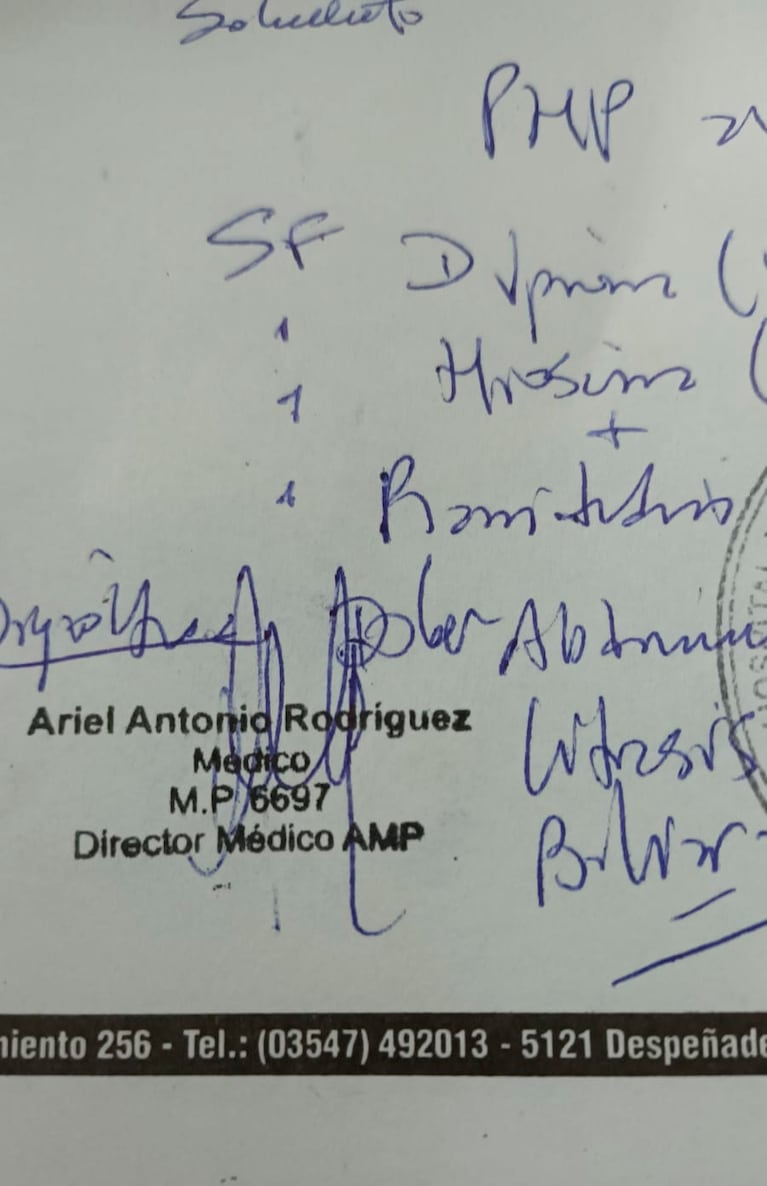 Solicito
PHP
SF Dipirona (
" Hioscina (
" +
" Ranitidina
Dolor Abdomin
Litiasis
Biliar
Ariel Antonio Rodríguez
Médico
M.P. 6697
Director Médico AMP
HOSPITAL
miento 256 - Tel.: (03547) 492013 - 5121 Despeñade